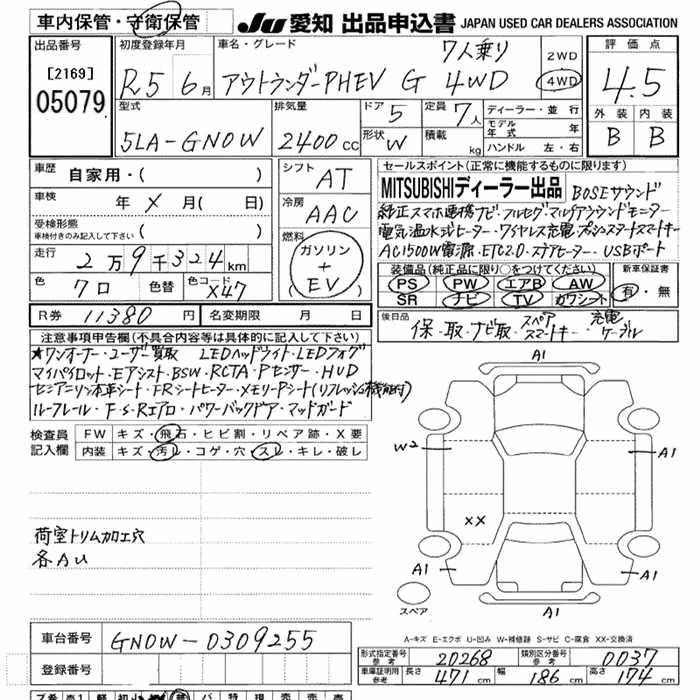 車内保管・守衛保管 JU 愛知 出品申込書 JAPAN USED CAR DEALERS ASSOCIATION
出品番号 [2169] 05079
初度登録年月 R5 6月
車名・グレード 7人乗り
アウトランダーPHEV G 4WD
2WD 4WD
評価点 4.5
外装 内装
B B
型式 5LA-GN0W
排気量 2400cc
ドア 5
形状 W
定員 7人
積載 kg
ディーラー・並行
モデル年式 年
ハンドル 左・右
車歴 自家用・( )
車検 年 × 月( 日)
受検形態
車検付きのみ記入して下さい ( )
走行 2万9千324km
色 クロ 色替 色コード X47
シフト AT
冷房 AAC
燃料 ガソリン + EV
( )
セールスポイント(正常に機能するものに限ります)
MITSUBISHIディーラー出品 BOSEサウンド
純正スマホ連携ナビ・フルセグ・マルチアラウンドモニター
電気温水式ヒーター・ワイヤレス充電・プッシュスタートスマートキー
AC1500W電源・ETC2.0・ステアヒーター・USBポート
装備品(純正品に限り○をつけてください)
PS PW エアB AW
SR ナビ TV カワシート
新車保証書
有・無
R券 11380円 名変期限 月 日
後日品 保・取・ナビ取・スペアスマートキー・充電ケーブル
注意事項申告欄(不具合内容等は具体的に記入して下さい)
★ワンオーナー・ユーザー買取 LEDヘッドライト・LEDフォグ
マイパイロット・Eアシスト・BSW・RCTA・Pセンサー・HUD
セミアニリン本革シート・FRシートヒーター・メモリーPシート(リフレッシュ機能付)
ルーフレール・F・S・Rエアロ・パワーバックドア・マッドガード
検査員記入欄
FW キズ・飛石・ヒビ割・リペア跡・X要
内装 キズ・汚レ・コゲ・穴・スレ・キレ・破レ
荷室トリム加工穴
各AU
A1
W2
A1
XX
A1
A1
A1
スペア
A-キズ E-エクボ U-凹み W-補修跡 S-サビ C-腐食 XX-交換済
車台番号 GN0W-0309255
登録番号
形式指定番号 参考 20268
類別区分番号 参考 0037
車庫証明用 参考 長さ 471cm 幅 186cm 高さ 174cm